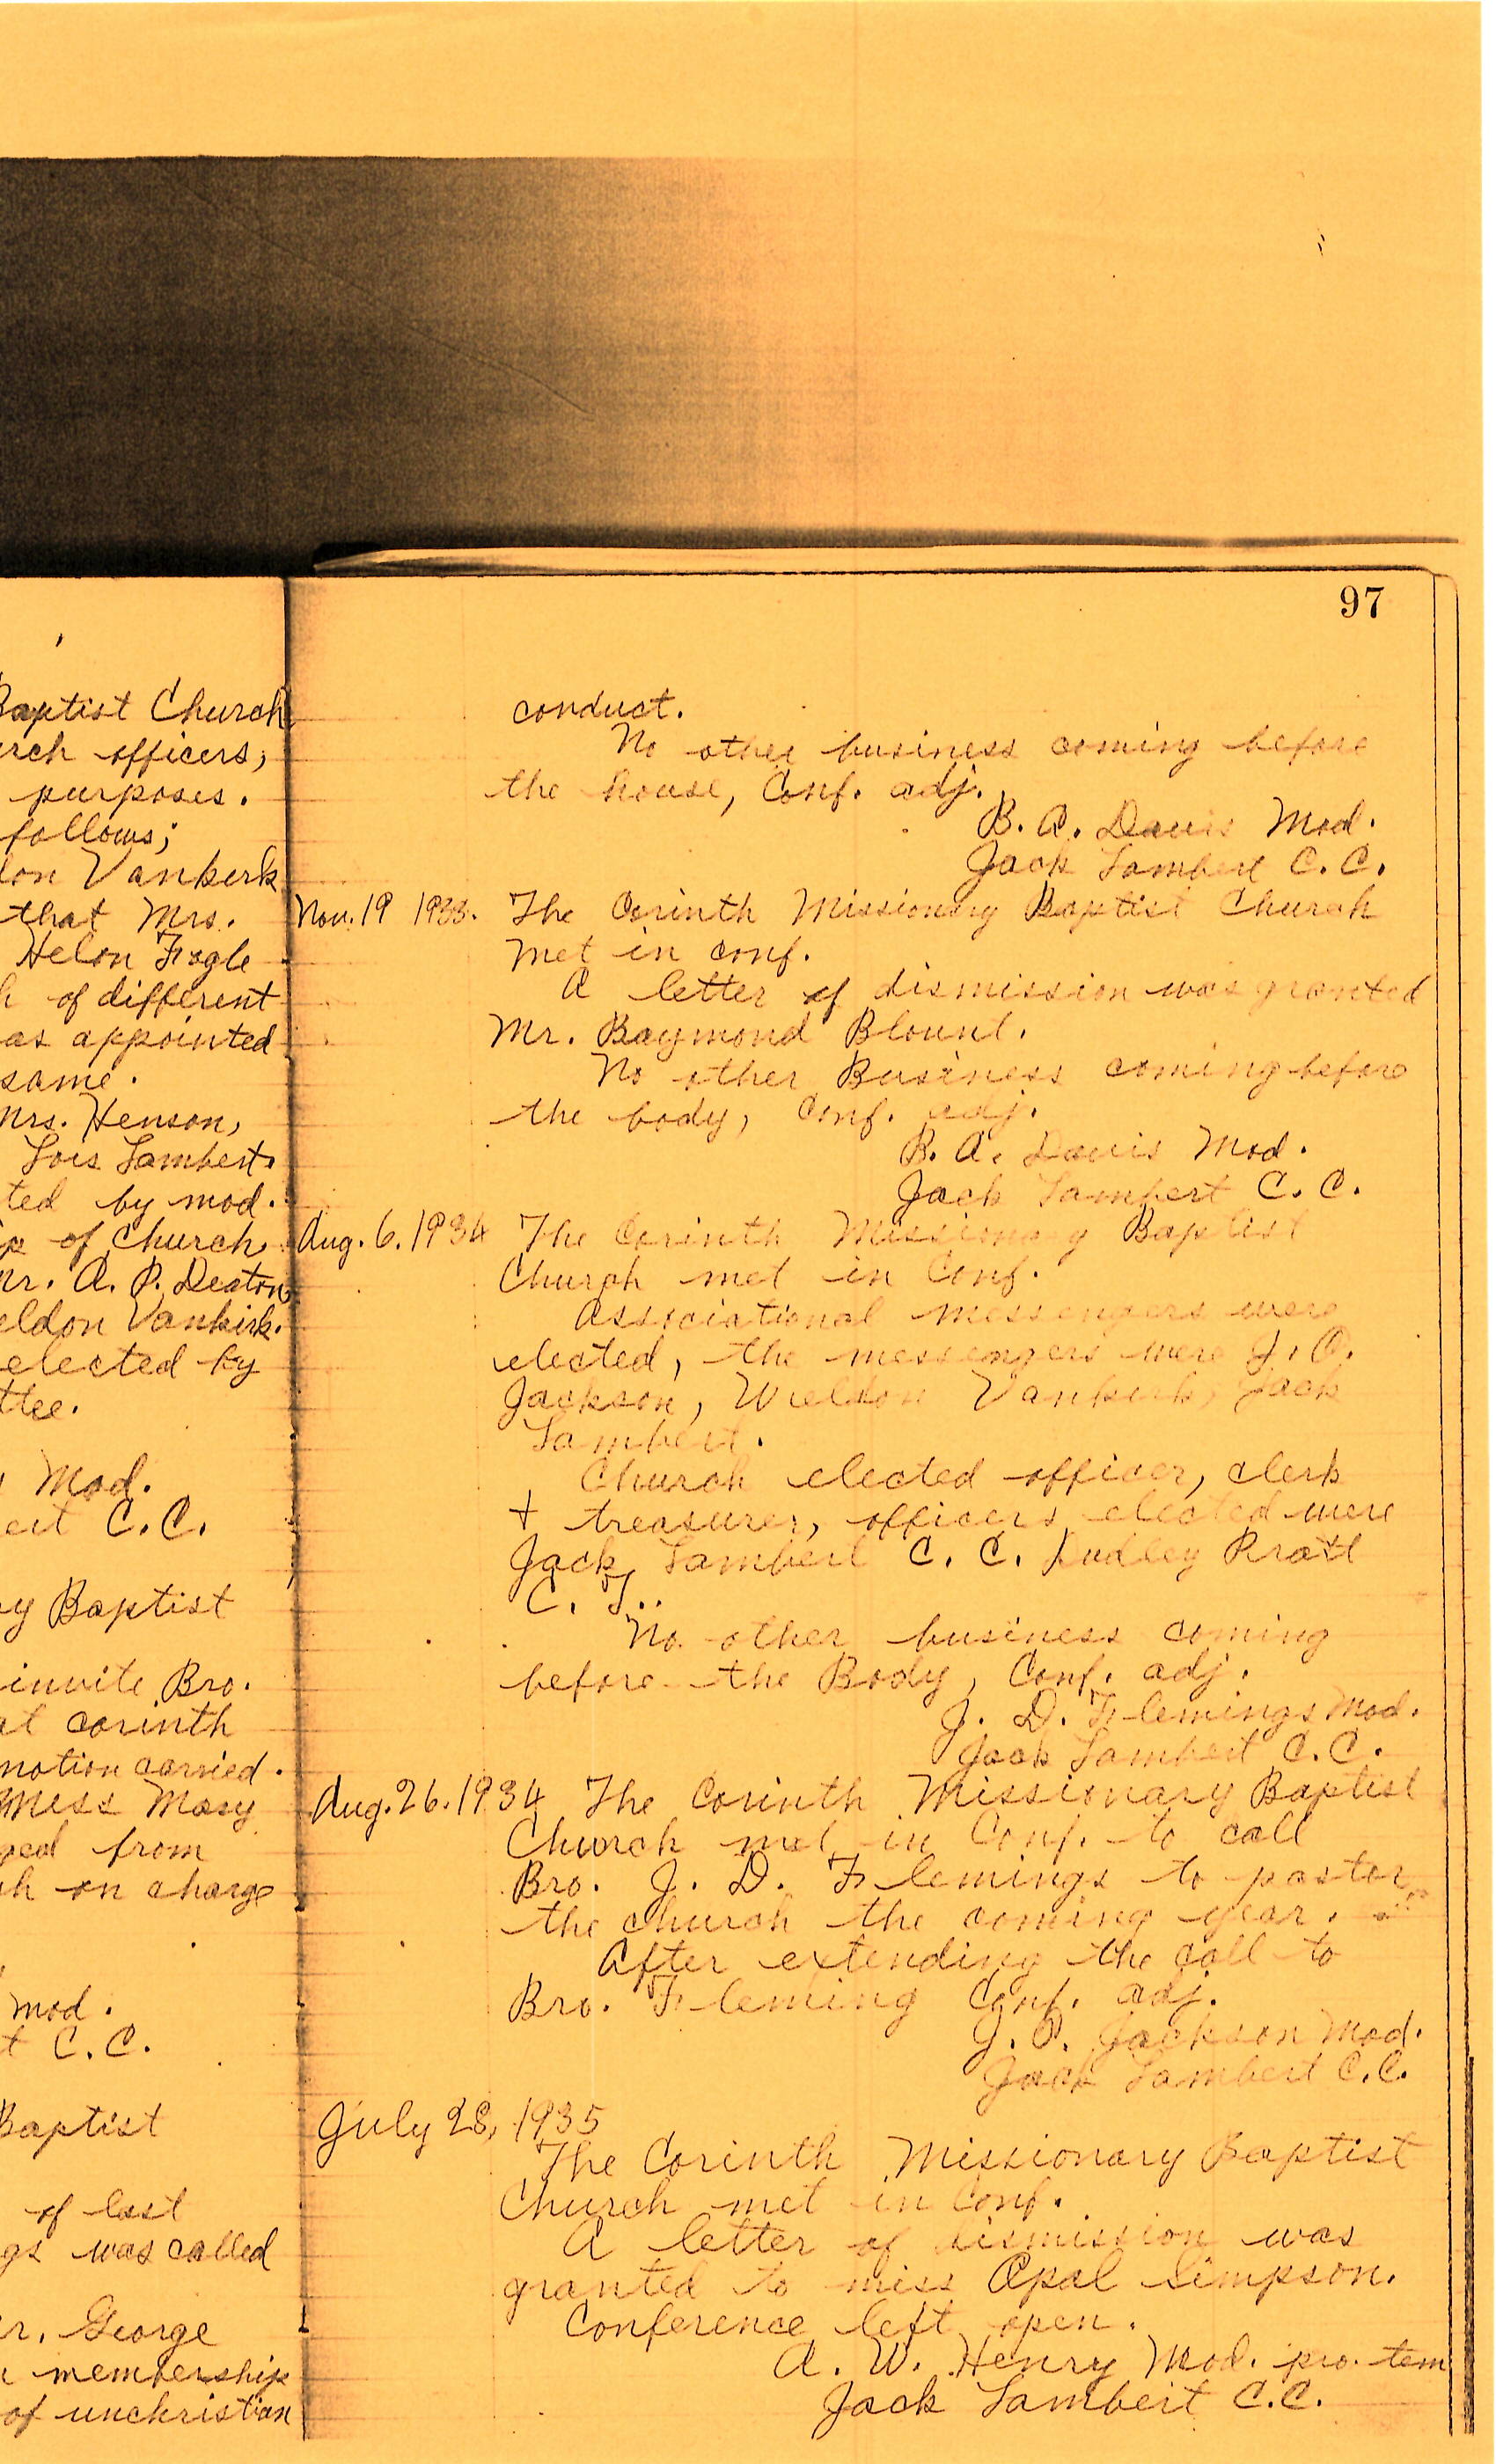 Baptist Church
rch officers,
purposes.
follows;
lon Vankerk
that Mrs.
Helon Fogle
h of different
as appointed
same.
Mrs. Henson,
Lois Lambert.
ted by mod.
ip of Church.
Mr. A. P. Deaton
eldon Vankirk.
elected by
ttee.
Mod.
ert C.C.
ry Baptist
invite Bro.
at corinth
motion carried.
Miss Mary
ged from
ch on charge
mod.
t C.C.
Baptist
of last
gs was called
r. George
membership
of unchristian
97
conduct.
No other business coming before
the house, Conf. adj.
B. A. Davis Mod.
Jack Lambert C. C.
Nov. 19 1933. The Corinth Missionary Baptist Church
met in conf.
A letter of dismission was granted
Mr. Raymond Blount.
No other Business coming before
the body, Conf. adj.
B. A. Davis Mod.
Jack Lambert C. C.
Aug. 6. 1934 The Corinth Missionary Baptist
Church met in Conf.
Associational messengers were
elected, the messengers were J. O.
Jackson, Weldon Vankirk, Jack
Lambert.
Church elected officer, clerk
+ treasurer, officers elected were
Jack Lambert C. C. Dudley Pratt
C. T..
No other business coming
before the Body, Conf. adj.
J. D. Flemings Mod.
Jack Lambert C. C.
Aug. 26. 1934 The Corinth Missionary Baptist
Church met in Conf. to call
Bro. J. D. Flemings to pastor
the church the coming year.
After extending the call to
Bro. Fleming Conf. adj.
J. O. Jackson Mod.
Jack Lambert C.C.
July 28, 1935
The Corinth Missionary Baptist
Church met in Conf.
A letter of dismission was
granted to miss Opal Simpson.
Conference left open.
A. W. Henry Mod. pro. tem
Jack Lambert C.C.